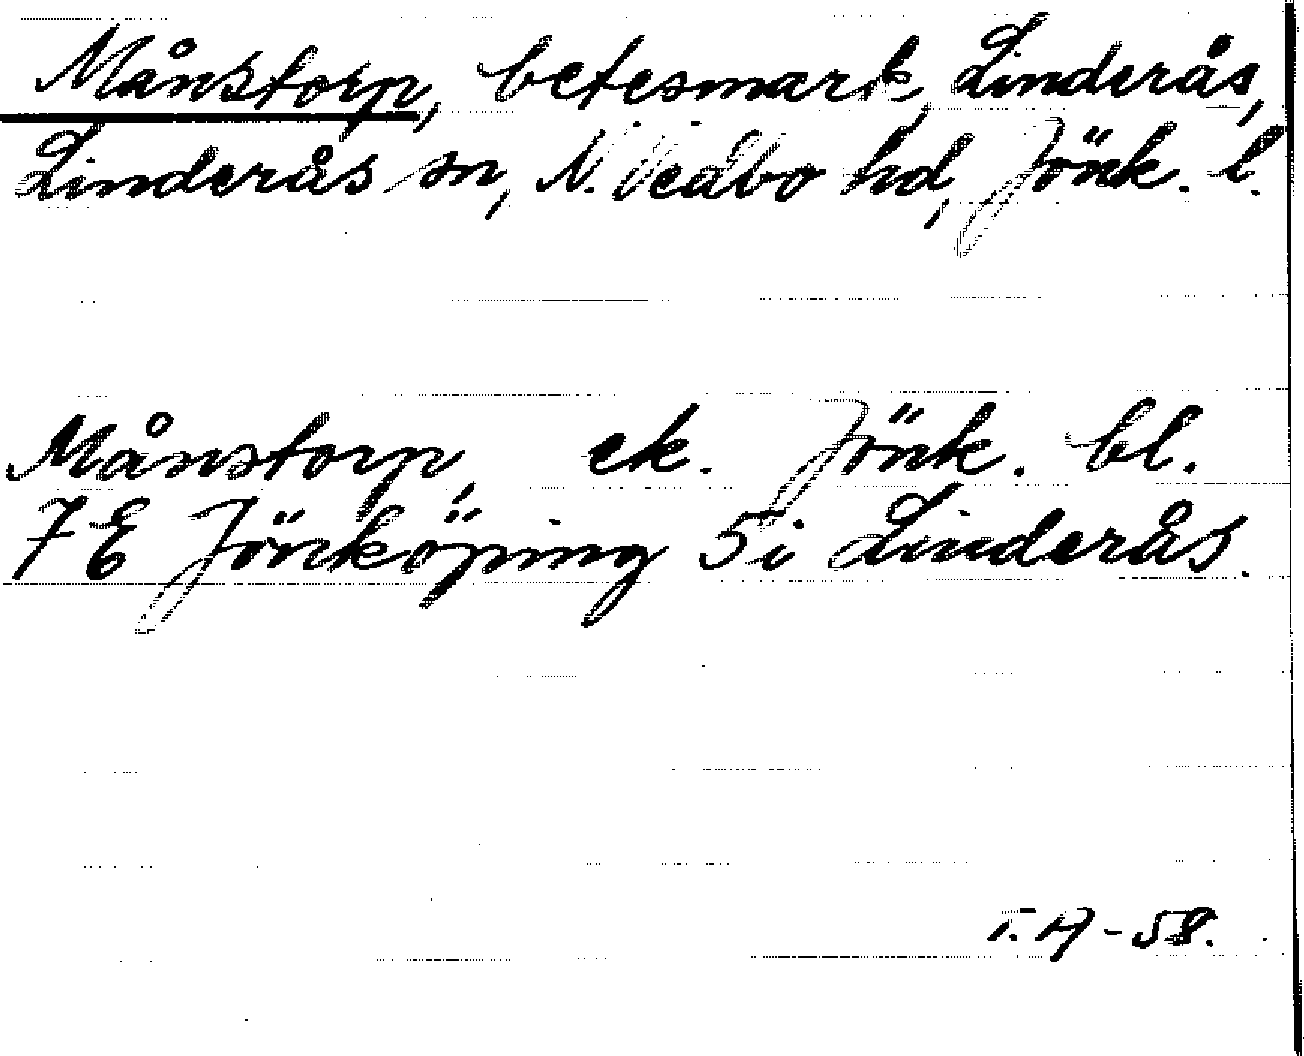 Månstorp, betesmark, Linderås,
Linderås sn, N. Vedbo hd, Jönk. l.
Månstorp, ek. Jönk. bl.
7E Jönköping 5i Linderås.
T. A-58.